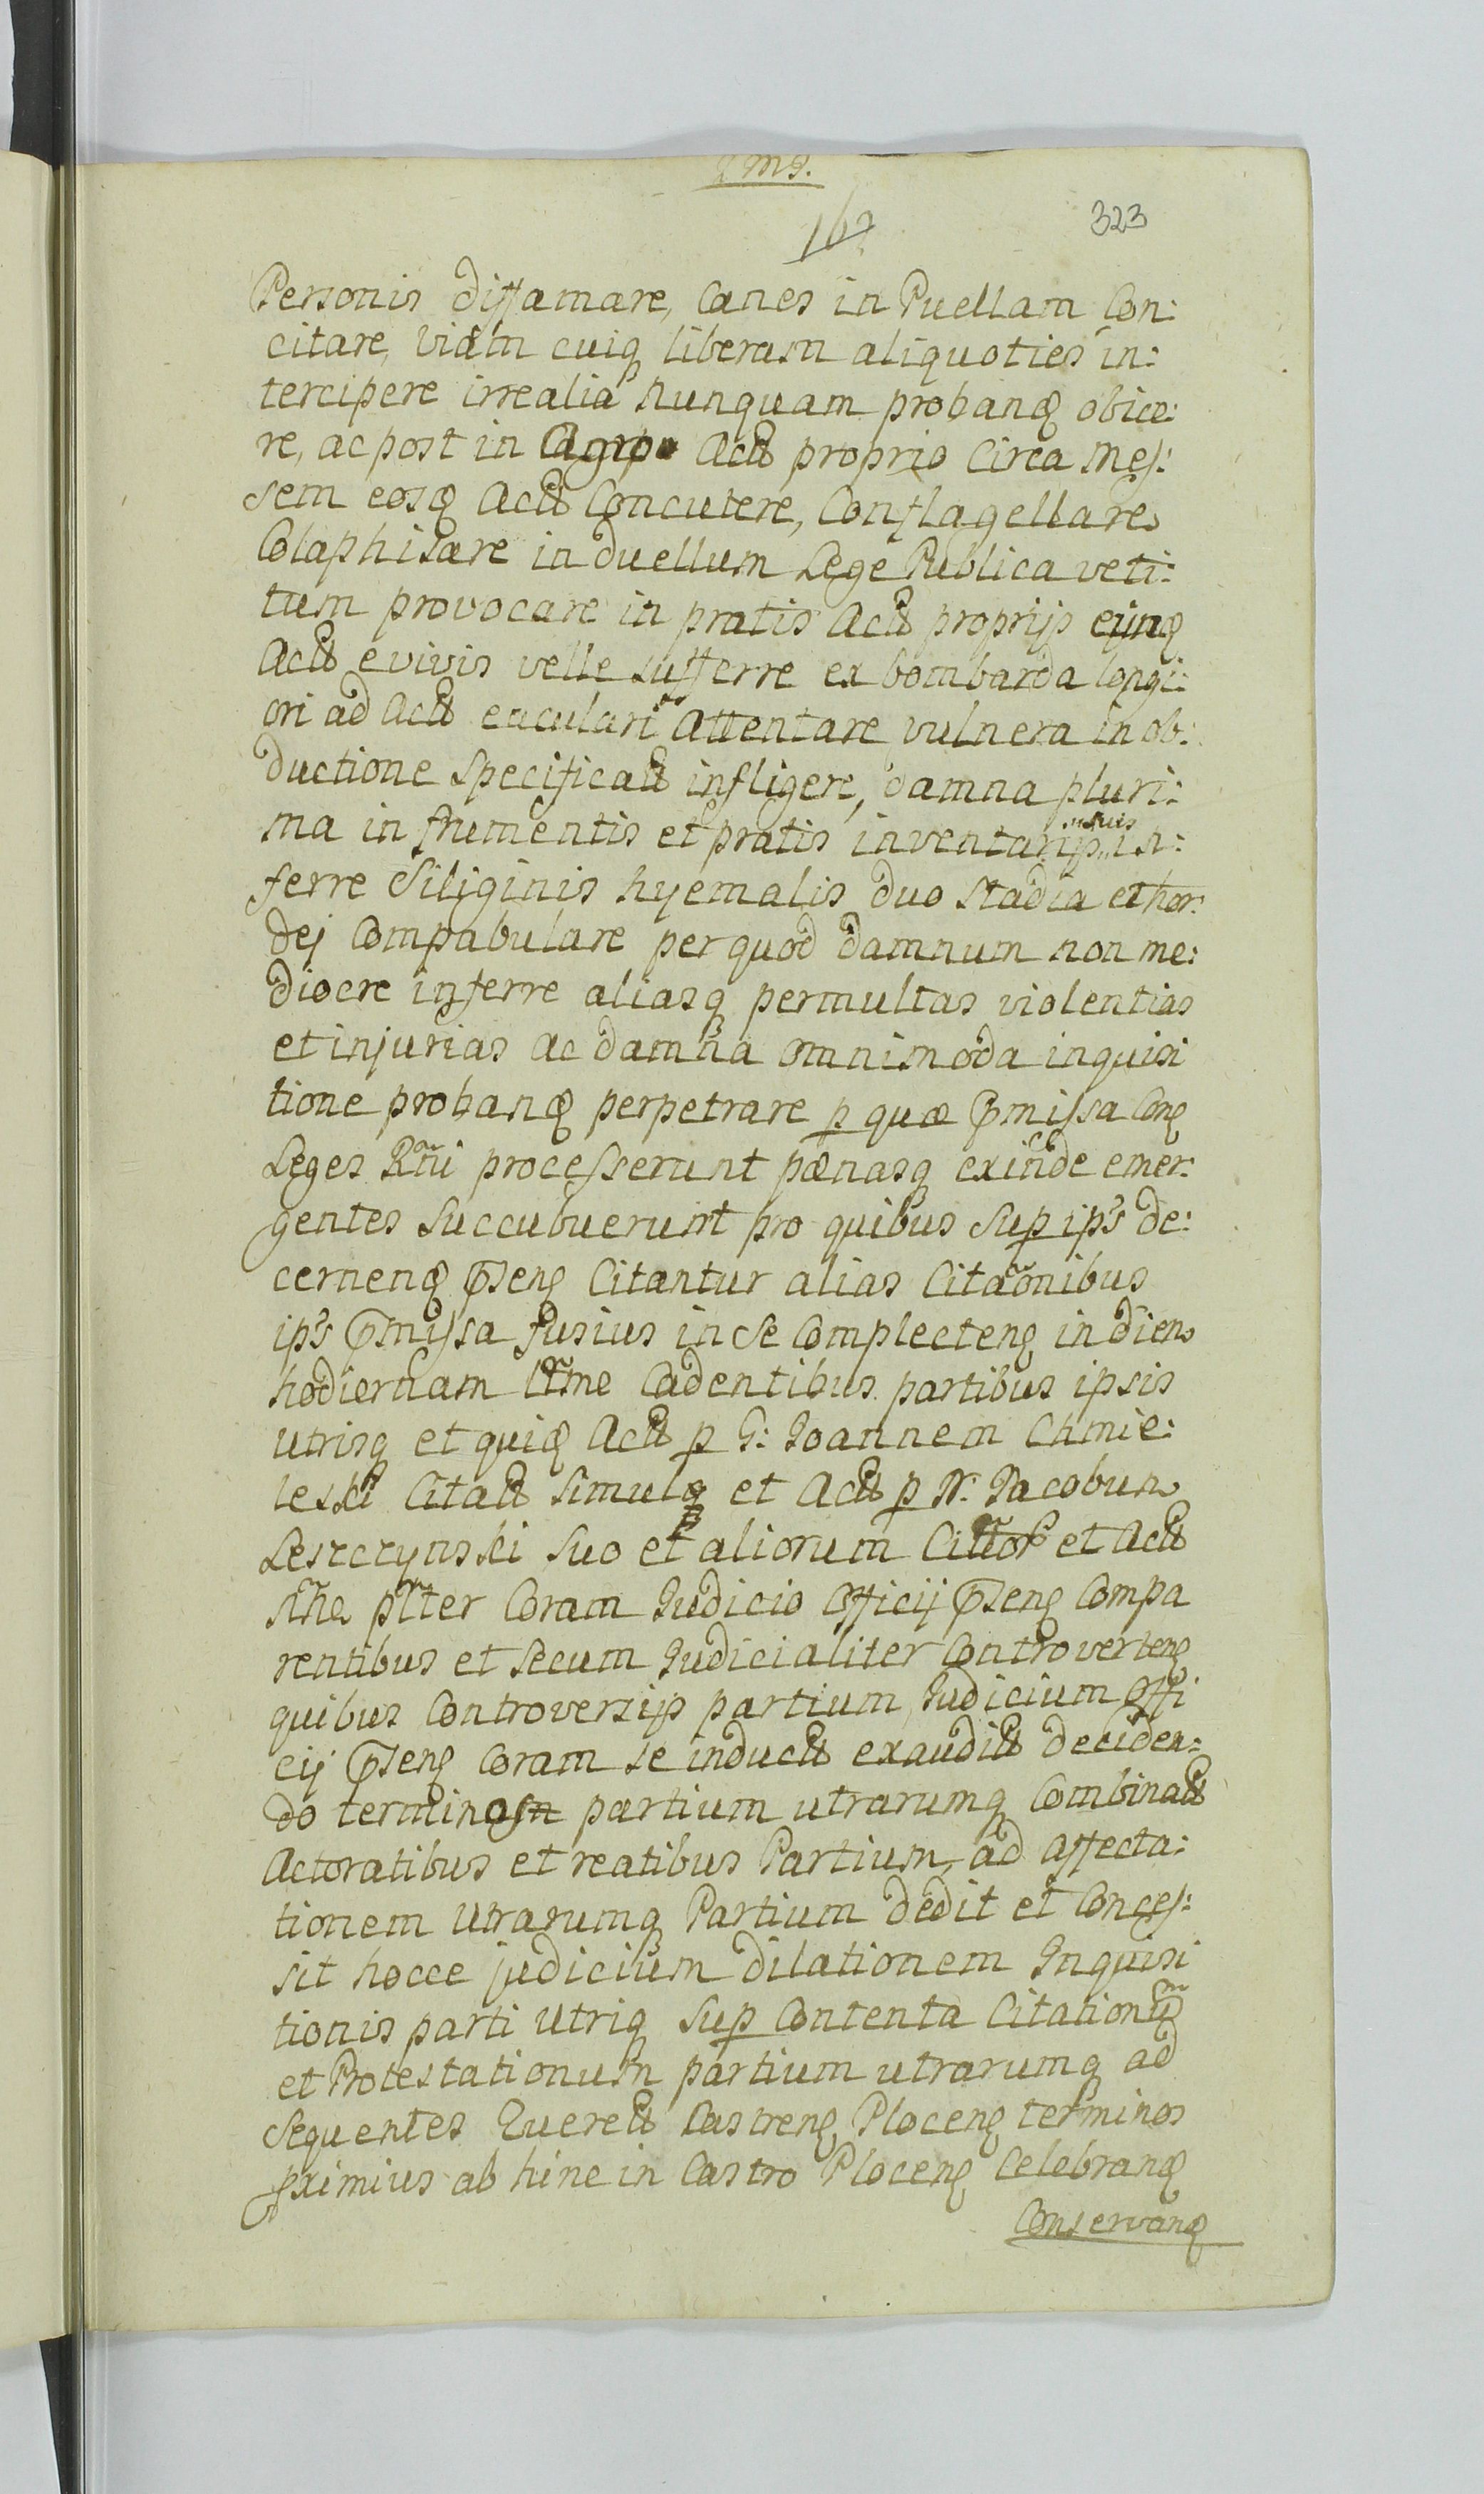 323
Personis diffamare, Canes in Puellam Con:
citare, viam cuiq liberam aliquoties in:
tercipere irrealia nunquam proband obice:
re, ac post in Agro Actt proprio Circa Mes:
sem eosd Actt Concutere, Conflagellare
Colaphisare in duellum Lege Publica veti:
tum provocare in pratis Actt proprijs
Actt e vivis velle sufferre ex bombarda longi:
ori ad Actt eaculari Attentare vulnera in ob:
ductione specificatt infligere, damna pluri:
ma in frumentis et pratis inventarijs suis in:
ferre Siliginis hyemalis duo stadia et hor:
dej Compabulare per quod damnum non me:
diocre inferre aliasq permultas violentias
et injurias ac damna omnimoda inquisi
tione proband perpetrare p quæ pmissa Con
Leges Rñi processerunt pænasq exinde emer:
gentes succubuerunt pro quibus Sup ips de:
cernend pseng Citantur alias Citaõnibus
ips pmissa fusius in se Complecteng in diem
hodiernam ltme Cadentibus partibus ipsis
utrisq et quid Actt p G: Joannem Chmie:
leski Citatt simulq et Actt p N: Jacobum
Leszczynski suo et aliorum Cittor et Actt
plter Coram Judicio Officij pseng Compa
rentibus et secum Judicialiter Controverteng
quibus Controversijs partium Judicium Offi
cij pseng Coram se inductt exauditt deciden:
do termino partium utrarumq Combinatt
Actoratibus et reatibus Partium, ad affecta:
tionem utrarumq Partium dedit et Conces:
sit hocce judicium dilationem Inquisi
tionis parti utriq Sup Contenta Citationũ
et Protestationum partium utrarumq ad
sequentes Querett Castreng Ploceng terminos
pximius ab hinc in Castro Ploceng Celebrand
Conservand